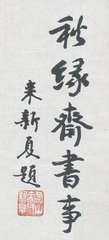 秋缘斋書事
来新夏题